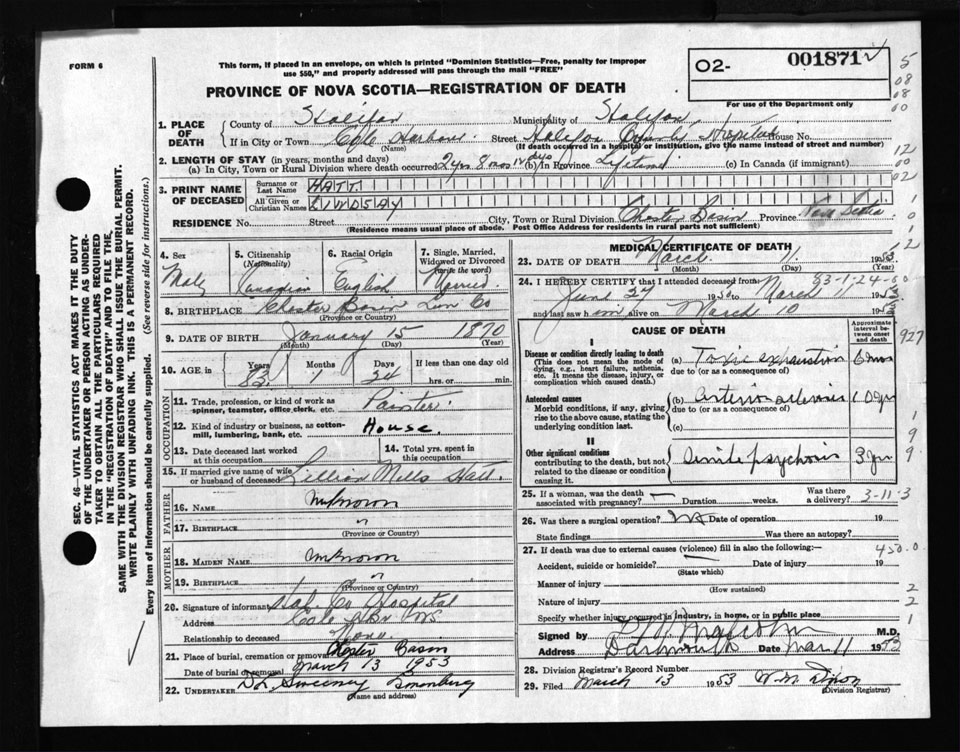 FORM 6
This form, if placed in an envelope, on which is printed "Dominion Statistics—Free, penalty for improper
use $50," and properly addressed will pass through the mail "FREE"
O2- 001871
For use of the Department only
PROVINCE OF NOVA SCOTIA—REGISTRATION OF DEATH
1. PLACE OF DEATH
County of Halifax Municipality of Halifax
If in City or Town Cole Harbour Street Halifax County Hospital House No.
(Name) (If death occurred in a hospital or institution, give the name instead of street and number)
2. LENGTH OF STAY (in years, months and days)
(a) In City, Town or Rural Division where death occurred 2 yrs 8 mos 12 dys (b) In Province Lifetime (c) In Canada (if immigrant)
3. PRINT NAME OF DECEASED
Surname or Last Name HATT
All Given or Christian Names LINDSAY
RESIDENCE No. Street City, Town or Rural Division Chester Basin Province Nova Scotia
(Residence means usual place of abode. Post Office Address for residents in rural parts not sufficient)
4. Sex Male
5. Citizenship (Nationality) Canadian
6. Racial Origin English
7. Single, Married, Widowed or Divorced (write the word) Married
8. BIRTHPLACE Chester Basin Lun Co
(Province or Country)
9. DATE OF BIRTH January 15 1870
(Month) (Day) (Year)
10. AGE in Years 83 Months 1 Days 24 If less than one day old
hrs. or min.
OCCUPATION
11. Trade, profession or kind of work as spinner, teamster, office clerk, etc. Painter
12. Kind of industry or business, as cotton-mill, lumbering, bank, etc. House
13. Date deceased last worked at this occupation
14. Total yrs. spent in this occupation
15. If married give name of wife or husband of deceased Lillian Mills Hatt
FATHER
16. Name Unknown
17. Birthplace "
(Province or Country)
MOTHER
18. MAIDEN NAME Unknown
19. Birthplace "
(Province or Country)
20. Signature of informant Hal. Co Hospital
Address Cole Hbr NS
Relationship to deceased None
21. Place of burial, cremation or removal Chester Basin
Date of burial or removal March 13 1953
22. UNDERTAKER Sweeney
(Name and address)
MEDICAL CERTIFICATE OF DEATH
23. DATE OF DEATH March 11 1953
(Month) (Day) (Year)
24. I HEREBY CERTIFY that I attended deceased from
June 27 1950 to March 11 1953
and last saw him alive on March 10 1953
CAUSE OF DEATH
Approximate interval between onset and death
I
Disease or condition directly leading to death
(This does not mean the mode of dying, e.g., heart failure, asthenia, etc. It means the disease, injury, or complication which caused death.)
(a) Toxic exhaustion 6 mos
due to (or as a consequence of)
Antecedent causes
Morbid conditions, if any, giving rise to the above cause, stating the underlying condition last.
(b) Arteriosclerosis 10 yrs
due to (or as a consequence of)
(c)
II
Other significant conditions
contributing to the death, but not related to the disease or condition causing it.
Senile psychosis 3 yrs
25. If a woman, was the death associated with pregnancy? Duration weeks. Was there a delivery?
3-11-3
26. Was there a surgical operation? No Date of operation 19
State findings Was there an autopsy?
27. If death was due to external causes (violence) fill in also the following:—
Accident, suicide or homicide? Date of injury 19
(State which)
Manner of injury
(How sustained)
Nature of injury
Specify whether injury occurred in industry, in home, or in public place
Signed by Malcolm M.D.
Address Dartmouth Date Mar 11 1953
28. Division Registrar's Record Number
29. Filed March 13 1953 W. M. Dixon
(Division Registrar)
SEC. 46—VITAL STATISTICS ACT MAKES IT THE DUTY
OF THE UNDERTAKER OR PERSON ACTING AS UNDER-
TAKER TO OBTAIN ALL THE PARTICULARS REQUIRED
IN THE "REGISTRATION OF DEATH" AND TO FILE THE
SAME WITH THE DIVISION REGISTRAR WHO SHALL ISSUE THE BURIAL PERMIT.
WRITE PLAINLY WITH UNFADING INK. THIS IS A PERMANENT RECORD.
Every item of information should be carefully supplied. (See reverse side for instructions.)